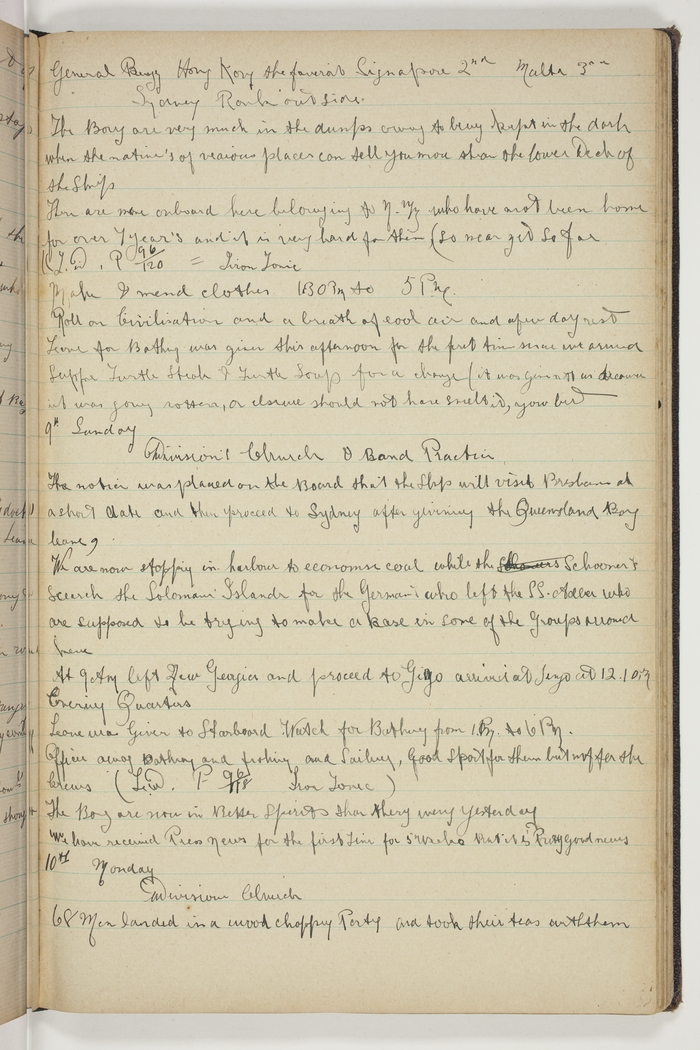 General Buzz Hong Kong the faverat Signapore 2nd Malta 3rd
Sydney Rank outside.
The Boys are very much in the dumps owing to being kept in the dark
when the native's of various places can tell you more than the lower Deck of
the Ship
There are more onboard here belonging to N.Z. who have not been home
for over 7 year's and it is very hard for them (so near yet so far
P 96/120 = Iron Tonic
Make & mend clothes 130 PM to 5 PM.
Roll on Civilisation and a breath of cool air and a few days rest
Leave for Bathing was given this afternoon for the first time since we arrived
Supper Turtle Steak & Turtle Soup for a change (it was given to us because
it was going rotten, or elsewe should not have smelt it, you bet
9th Sunday
Division's Church & Band Practice
The notice was placed on the Board that the Ship will visit Brisbane at
a short date and then proceed to Sydney after giving the Queensland Boys
leave,
We are now stopping in harbour to economise coal while the Schooner's
search the Soloman Islands for the German's who left the SS. who
are supposed to be trying to make a base in some of the Groups around
here
At 9 AM left New Georgia and proceed to Gizo arrived at Gizo at 12.10 PM
Evening Quarters
Leave was Given to Starboard Watch for Bathing from 1 PM. to 6 PM.
Officers away Bathing and fishing and Sailing, Good Sport for them but not for the
Crews ( P 96/118 Iron Tonic )
The Boys are now in Better Spirits than they were yesterday
We have received Press news for the first time for 5 weeks that it is Pretty good news
10th Monday
Division Church
68 Men landed in a wood chopping Party and took their teas with them